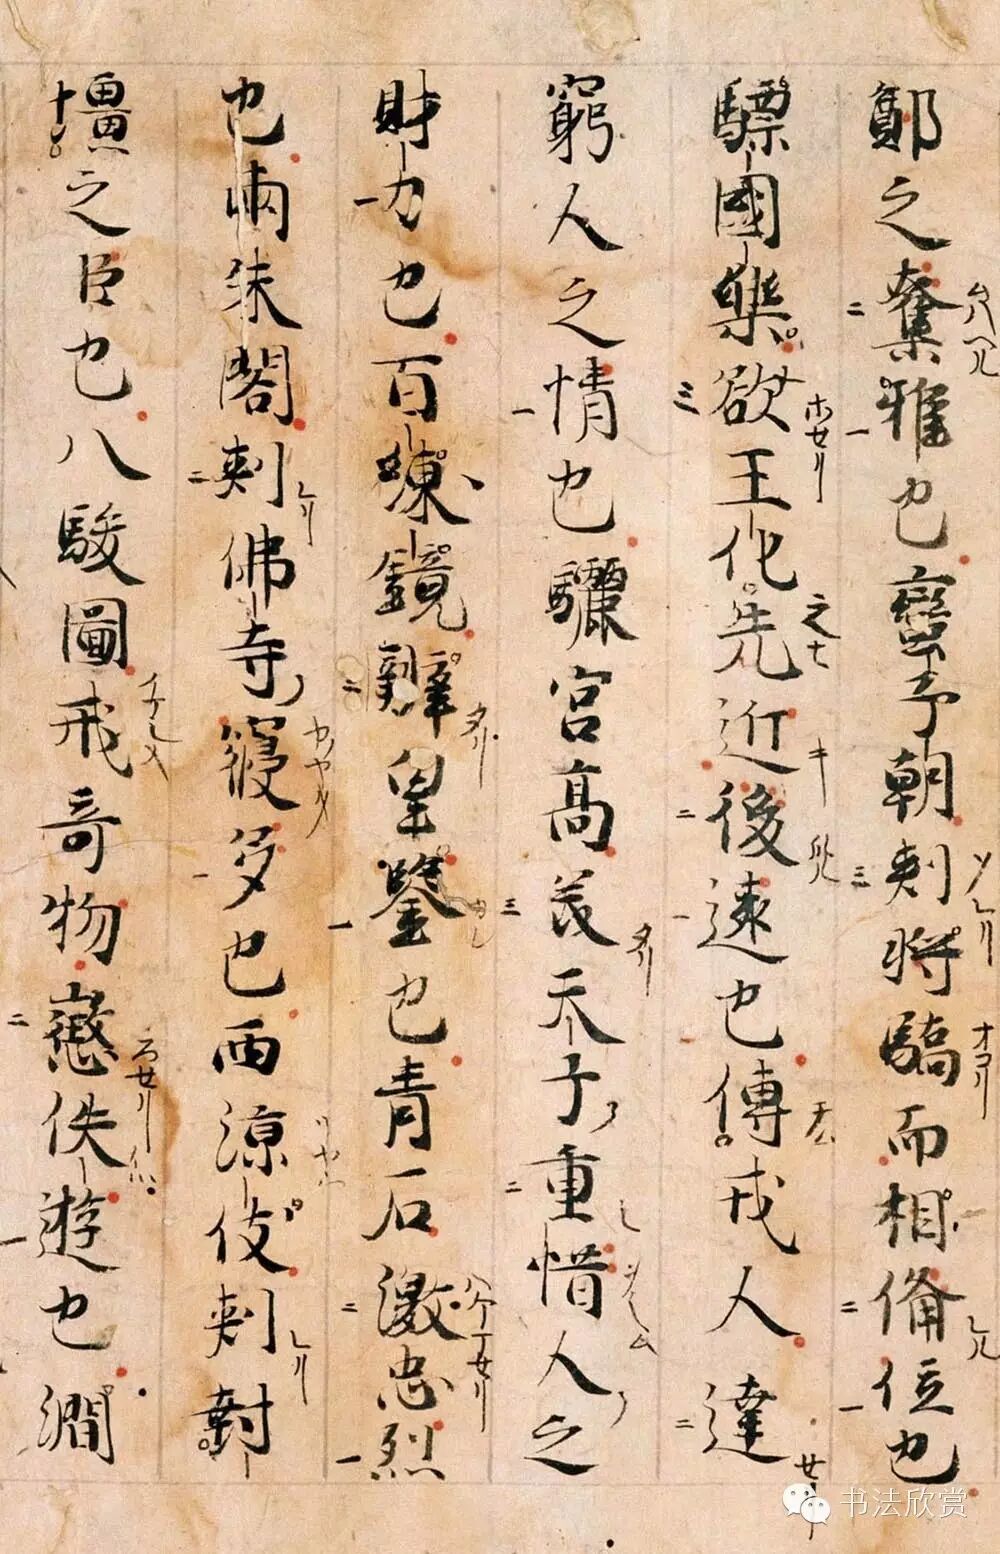 鄭之奪雅也蠻子朝刺将驕而相備位也
驃國樂欲王化先近後遠也傳戎人達
窮人之情也驪宮高美天子重惜人之
財力也百煉鏡辯皇鑒也青石激忠烈
也兩朱閣刺佛寺寖多也西涼伎刺封
壃之臣也八駿圖戒奇物懲佚遊也澗
书法欣赏